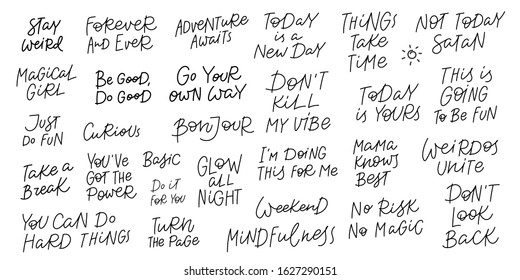 Stay
Weird
Forever
And Ever
Adventure
Awaits
Today
is a
New Day
Things
Take
Time
Not Today
Satan
Magical
Girl
Be Good,
Do Good
Go Your
Own Way
Don't
Kill
My Vibe
Today
is Yours
This is
Going
To Be Fun
Just
Do Fun
Curious
Bonjour
Take a
Break
You've
Got The
Power
Basic
Do it
For You
Glow
All
Night
I'm Doing
This For Me
Mama
Knows
Best
Weirdos
Unite
You Can Do
Hard Things
Turn
The Page
Weekend
Mindfulness
No Risk
No Magic
Don't
Look
Back
shutterstock.com · 1627290151